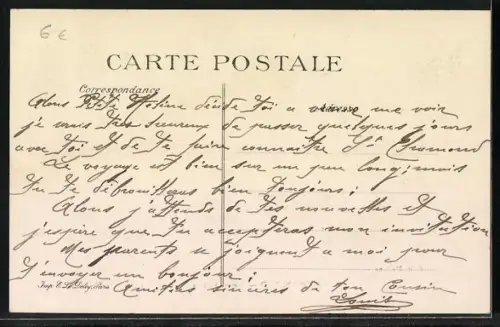 6 €
CARTE POSTALE
Correspondance
Adresse
Alons Petite décide toi a venir me voir
je serais très heureux de passer quelques jours
avec toi et de te faire connaitre St
Le voyage est bien sur un peu long, mais
tu te débrouilleras bien toujours ;
Alons j'attends de tes nouvelles et
j'espère que tu accepteras mon invitation
Mes parents se joignent a moi pour
t'envoyer un bonjour ;
Amitiés sincères de ton Cousin
Imp. Paris